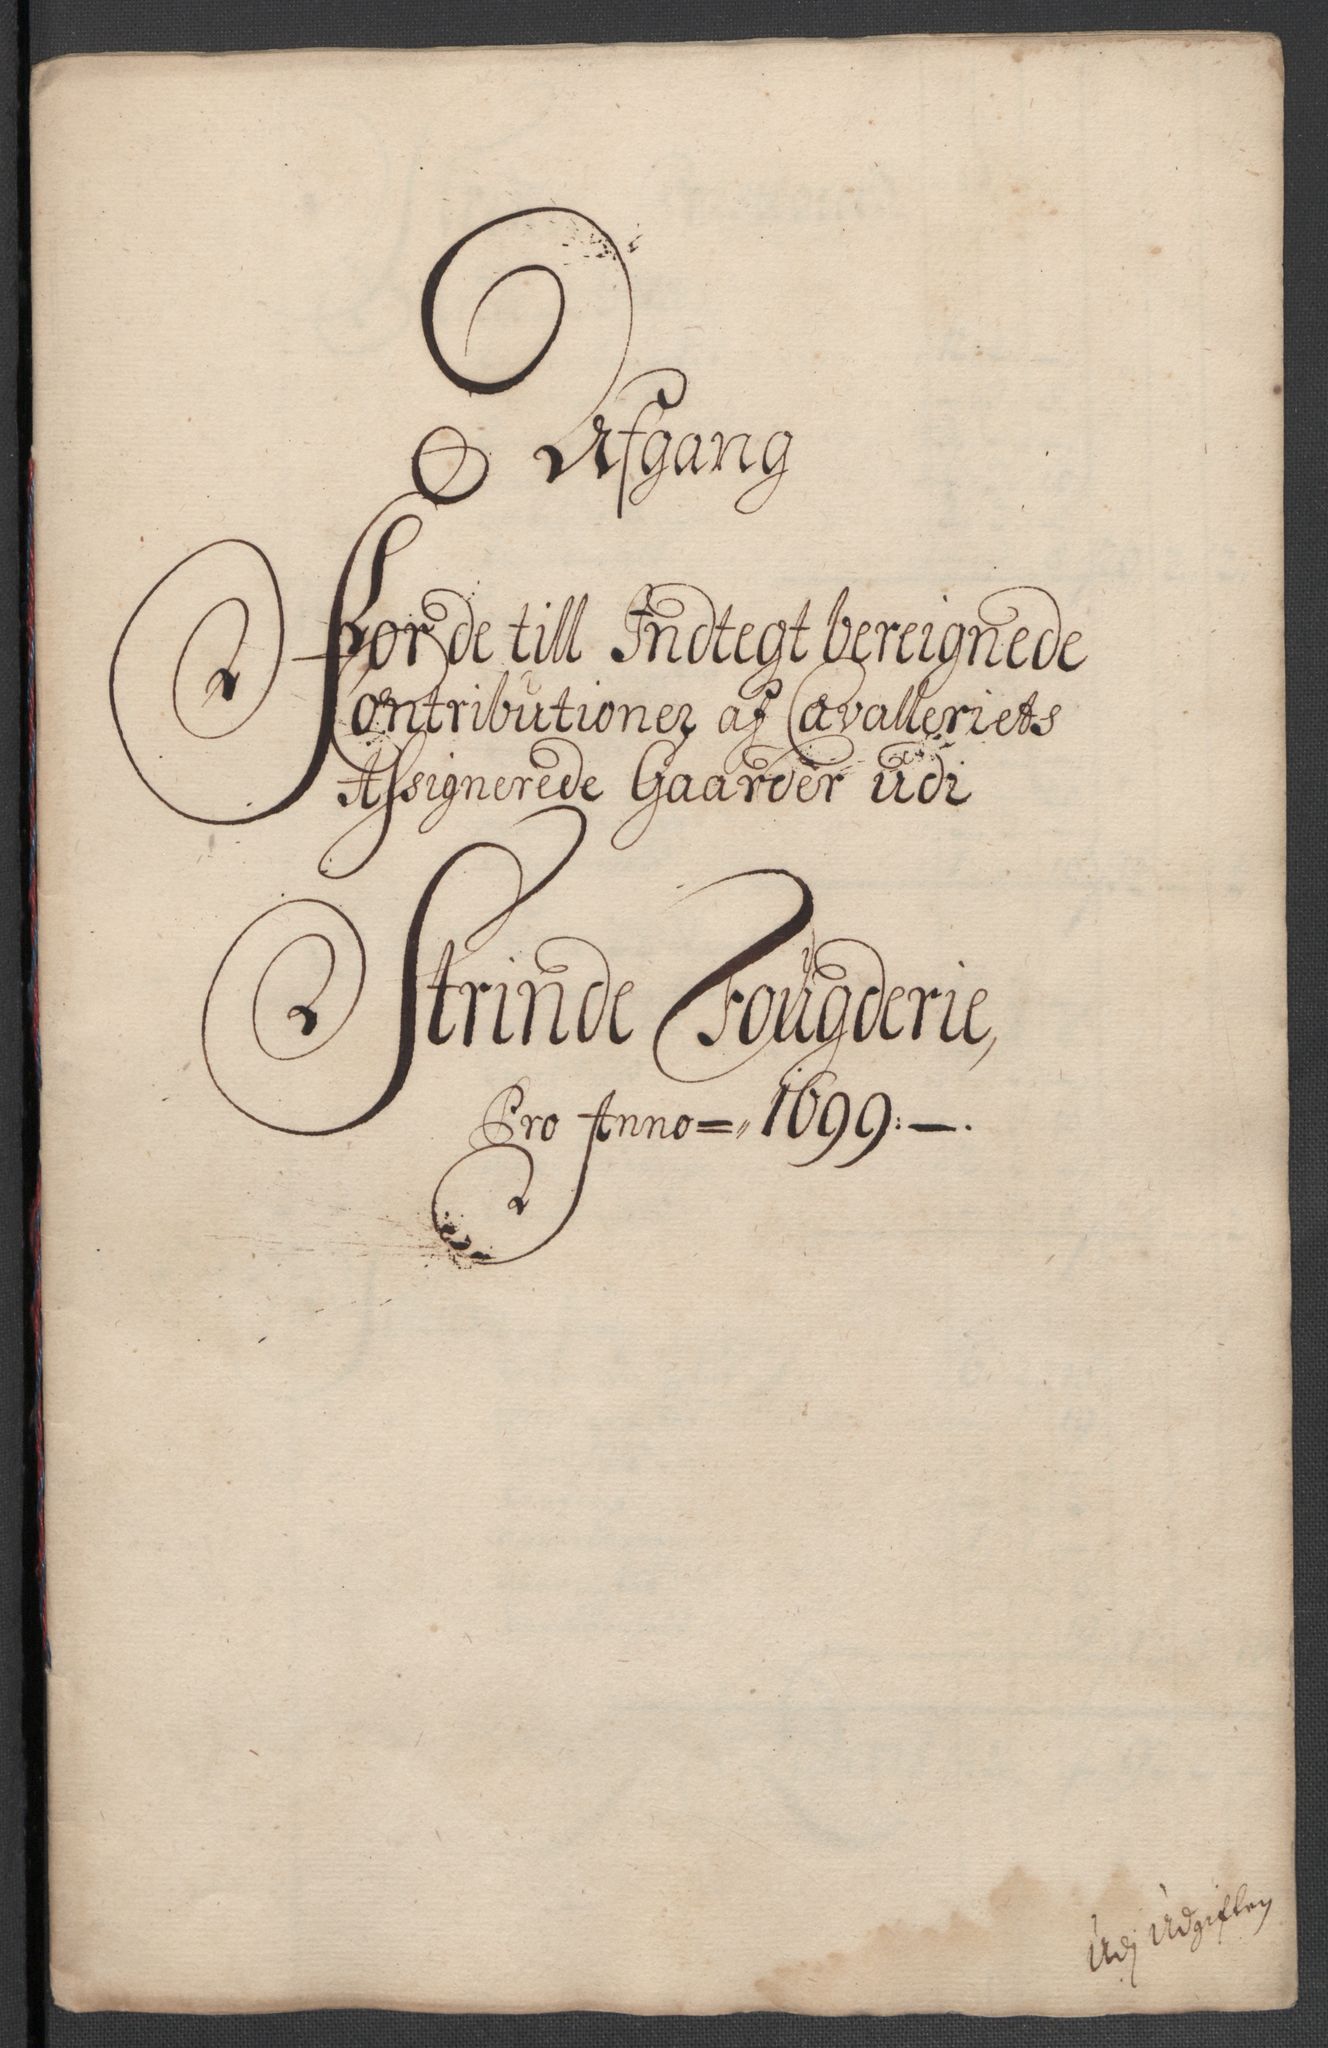 Afgang
For de till Indtegt bereignede
Contributioner af Cavalleriets
Assignerede Gaarder udi
Strinde Fougderie,
Pro Anno =,, 1699:—.
Udj Udgiften